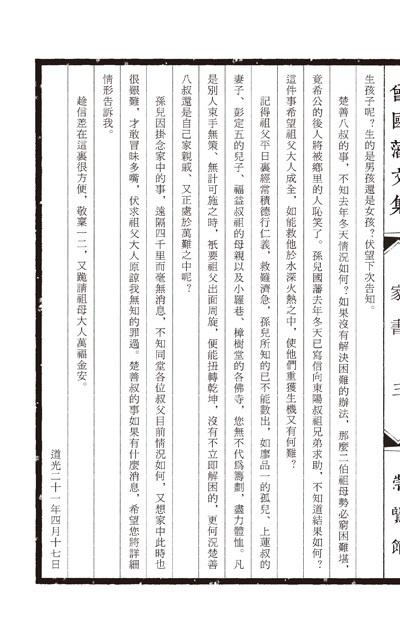 曾國藩文集
家書
三
崇賢館
生孩子呢？生的是男孩還是女孩？伏望下次告知。
楚善八叔的事，不知去年冬天情況如何？如果沒有解決困難的辦法，那麼二伯祖母勢必窮困難堪，
竟希公的後人將被鄉里的人恥笑了。孫兒國藩去年冬天已寫信向東陽叔祖兄弟求助，不知道結果如何？
這件事希望祖父大人成全，如能救他於水深火熱之中，使他們重獲生機又有何難？
記得祖父平日裏經常積德行仁義，救難濟急，孫兒所知的已不能數出，如廖品一的孤兒、上蓮叔的
妻子、彭定五的兒子、福益叔祖的母親以及小羅巷、樟樹堂的各佛寺，您無不代為籌劃，盡力體恤。凡
是別人束手無策、無計可施之時，衹要祖父出面周旋，便能扭轉乾坤，沒有不立即解困的，更何況楚善
八叔還是自己家親戚、又正處於萬難之中呢？
孫兒因掛念家中的事，遠隔四千里而毫無消息，不知同堂各位叔父目前情況如何，又想家中此時也
很艱難，才敢冒昧多嘴，伏求祖父大人原諒我無知的罪過。楚善叔的事如果有什麼消息，希望您將詳細
情形告訴我。
趁信差在這裏很方便，敬稟一二，又跪請祖母大人萬福金安。
道光二十一年四月十七日